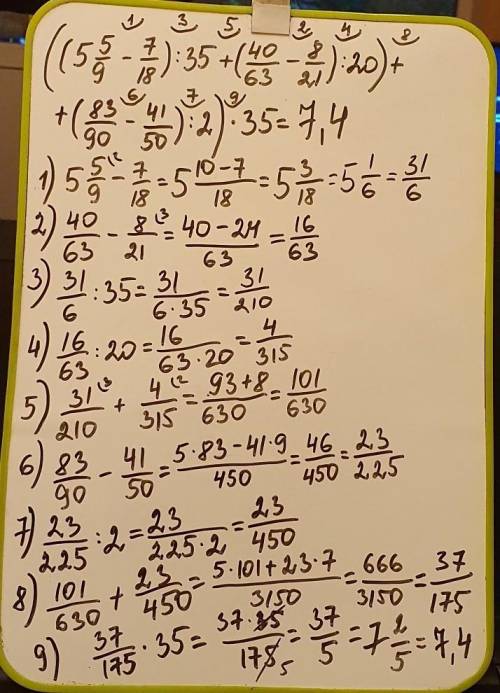 1 3 5 2 4 8
((5 5/9 − 7/18) : 35 + (40/63 − 8/21) : 20) +
6 7 9
+ (83/90 − 41/50) : 2) · 35 = 7,4
1) 5 5/9 (2 − 7/18 = 5 (10 − 7)/18 = 5 3/18 = 5 1/6 = 31/6
2) 40/63 − 8/21 (3 = (40 − 24)/63 = 16/63
3) 31/6 : 35 = 31/(6 · 35) = 31/210
4) 16/63 : 20 = 16/(63 · 20) = 4/315
5) 31/210 (3 + 4/315 (2 = (93 + 8)/630 = 101/630
6) 83/90 − 41/50 = (5 · 83 − 41 · 9)/450 = 46/450 = 23/225
7) 23/225 : 2 = 23/(225 · 2) = 23/450
8) 101/630 + 23/450 = (5 · 101 + 23 · 7)/3150 = 666/3150 = 37/175
9) 37/175 · 35 = (37 · 35)/175 5 = 37/5 = 7 2/5 = 7,4